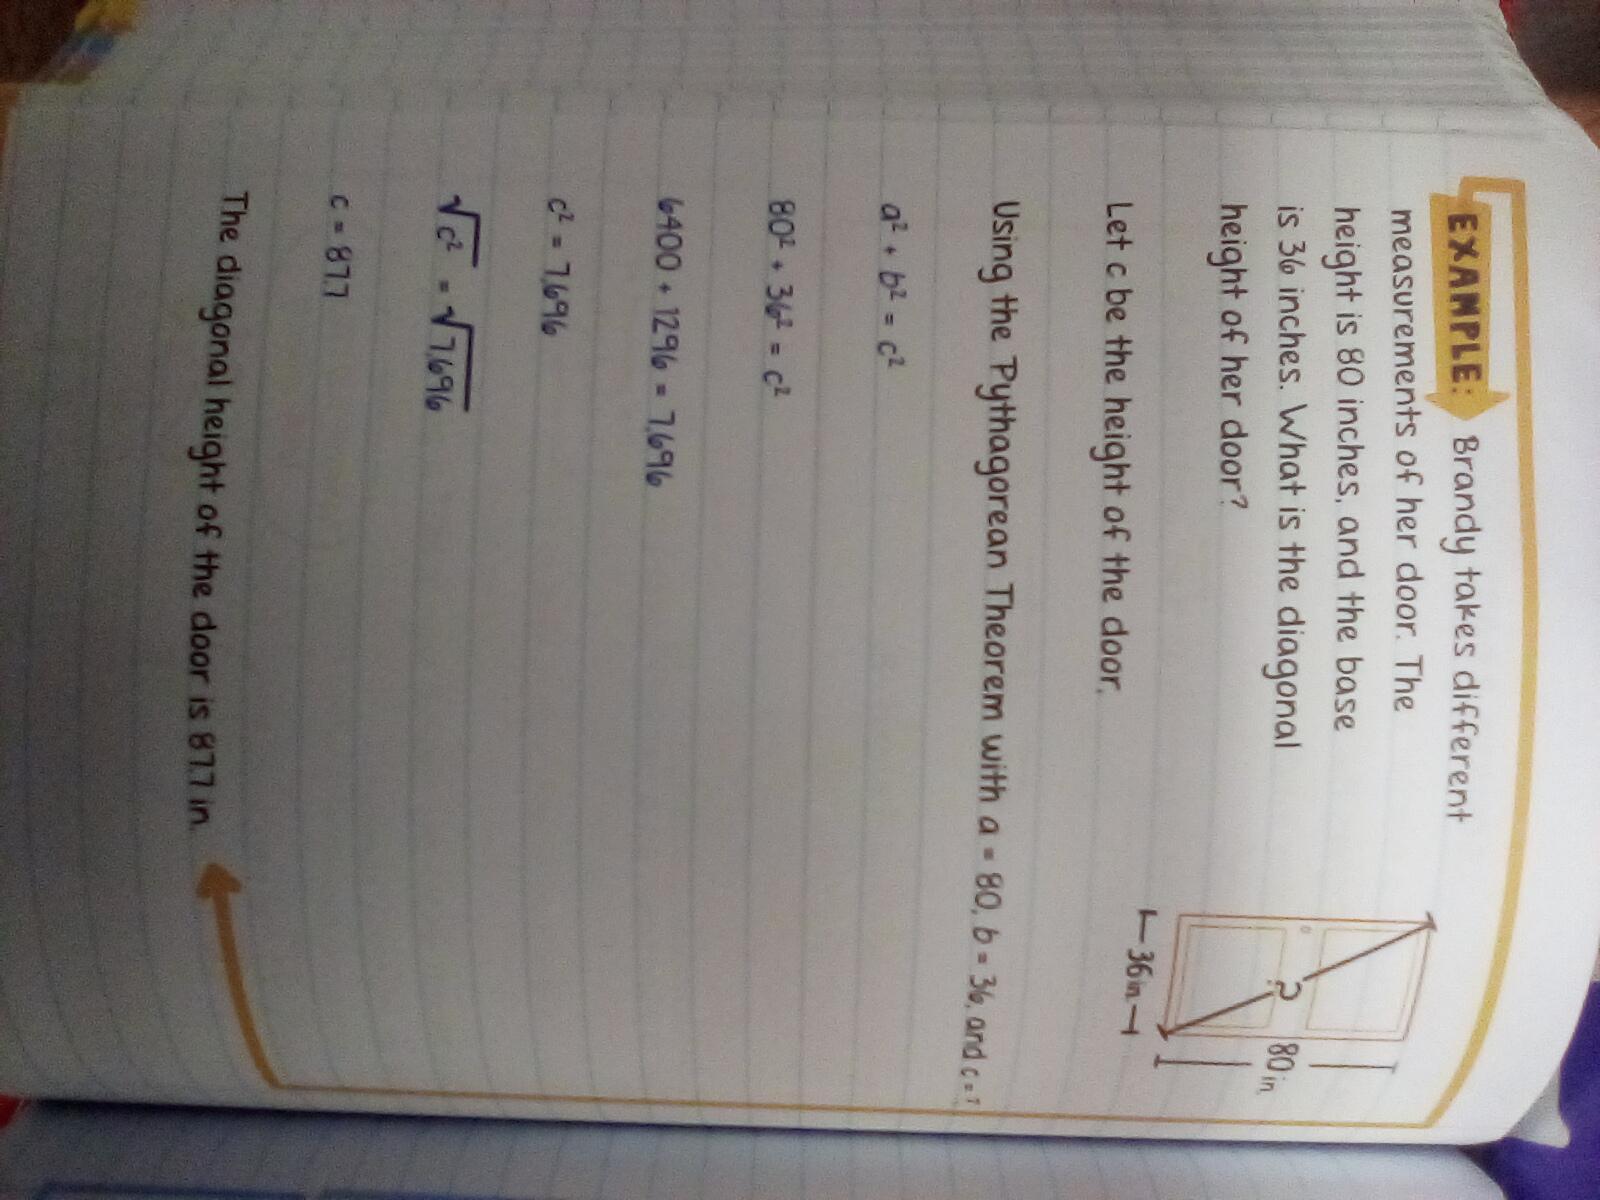 EXAMPLE: Brandy takes different
measurements of her door. The
height is 80 inches, and the base
is 36 inches. What is the diagonal
height of her door?
?
80 in.
36 in.
Let c be the height of the door.
Using the Pythagorean Theorem with a = 80, b = 36, and c = ?
a² + b² = c²
80² + 36² = c²
6400 + 1296 = 7,696
c² = 7,696
√c² = √7,696
c = 87.7
The diagonal height of the door is 87.7 in.